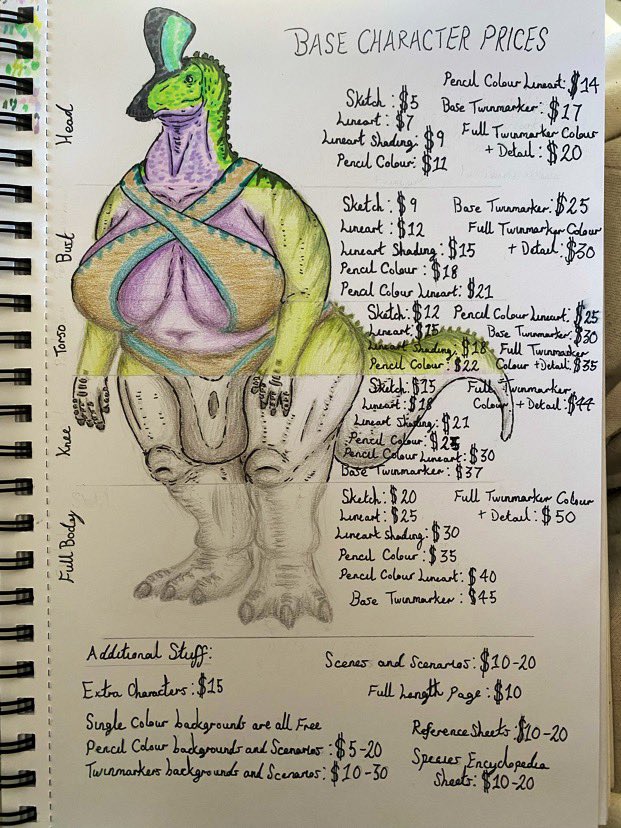 BASE CHARACTER PRICES
Head
Sketch : $5
Lineart : $7
Lineart Shading : $9
Pencil Colour : $11
Pencil Colour Lineart : $14
Base Twinmarker : $17
Full Twinmarker Colour
+ Detail : $20
Bust
Sketch : $9
Lineart : $12
Lineart Shading : $15
Pencil Colour : $18
Pencil Colour Lineart : $21
Base Twinmarker : $25
Full Twinmarker Colour
+ Detail : $30
Torso
Sketch : $12
Lineart : $15
Lineart Shading : $18
Pencil Colour : $22
Pencil Colour Lineart : $25
Base Twinmarker : $30
Full Twinmarker
Colour + Detail : $35
Knee
Sketch : $15
Lineart : $18
Lineart Shading : $21
Pencil Colour : $25
Pencil Colour Lineart : $30
Base Twinmarker : $37
Full Twinmarker
Colour + Detail : $44
Full Body
Sketch : $20
Lineart : $25
Lineart Shading : $30
Pencil Colour : $35
Pencil Colour Lineart : $40
Base Twinmarker : $45
Full Twinmarker Colour
+ Detail : $50
Additional Stuff :
Extra Characters : $15
Single Colour backgrounds are all Free
Pencil Colour backgrounds and Scenarios : $5-20
Twinmarkers backgrounds and Scenarios : $10-30
Scenes and Scenarios : $10-20
Full Length Page : $10
Reference Sheets : $10-20
Species Encyclopedia
Sheets : $10-20